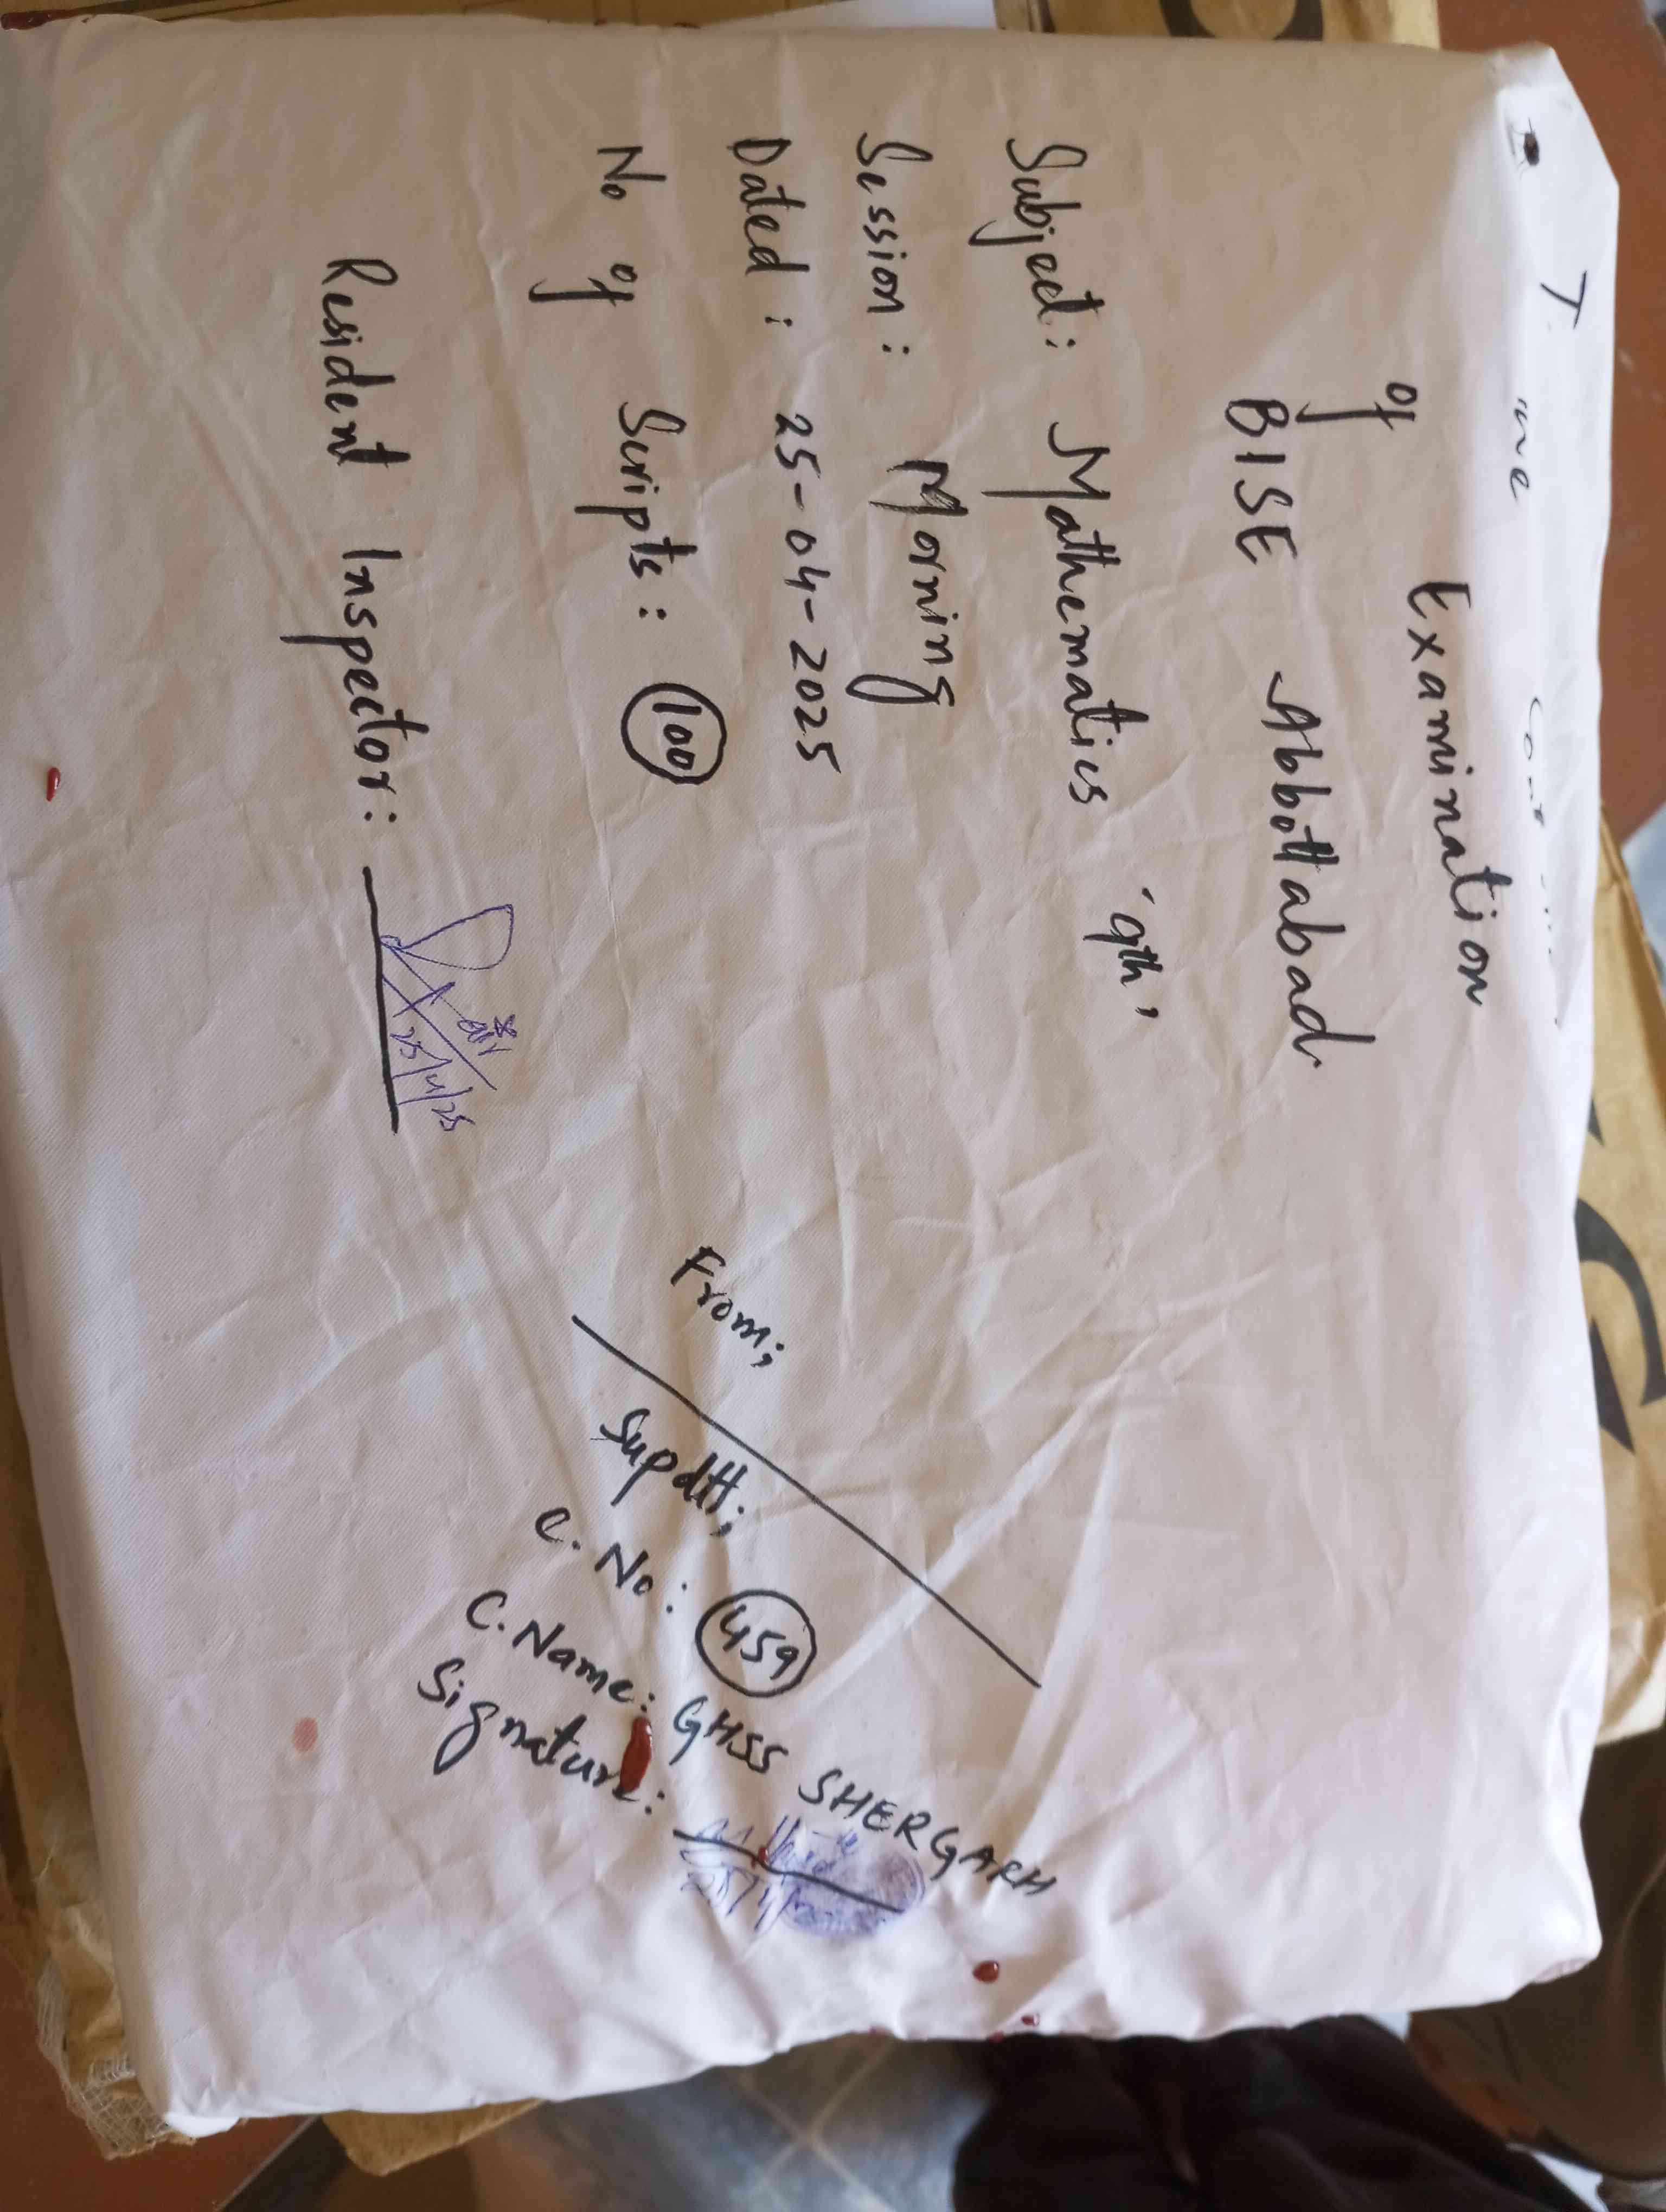 Examination
of
BISE Abbottabad
Subject: Mathematics '9th,
Session: Morning
Dated: 25-04-2025
No of Scripts: 100
Resident Inspector:
25/4/25
From;
Supdtt;
C. No: 459
C. Name: GHSS SHERGARH
Signature: